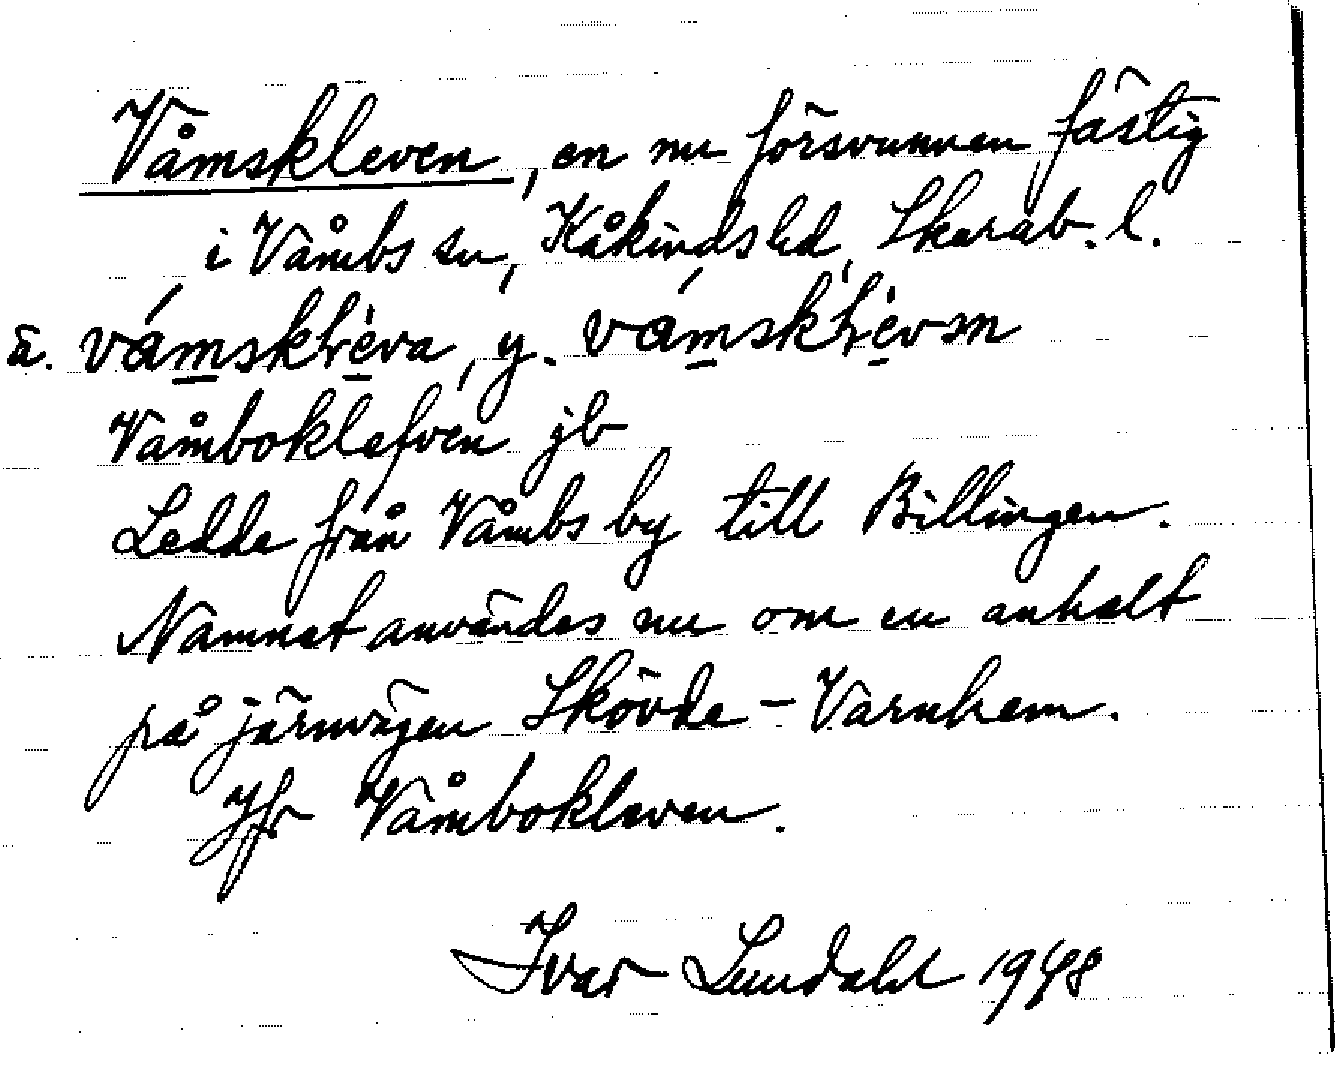 Våmskleven, en nu försvunnen fästig
i Våmbs sn, Kåkinds hd, Skarab. l.
ä. våmsklèva, y. våmsklèvən
Våmboklefven jb
Ledde från Våmbs by till Billingen.
Namnet användes nu om en anhalt
på järnvägen Skövde – Varnhem.
Jfr Våmbokleven.
Ivar Lundahl 1948